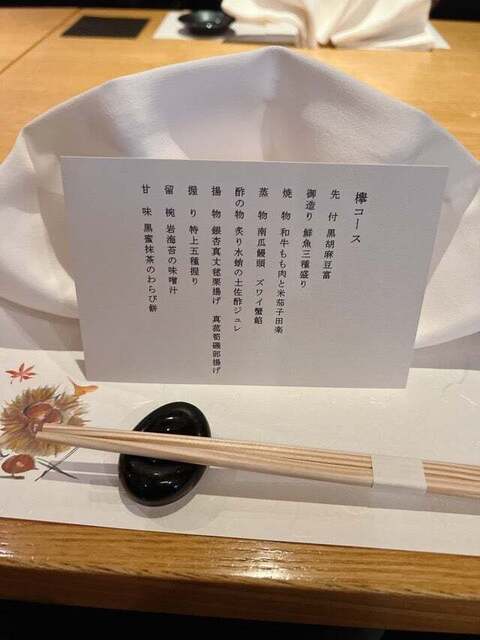 欅コース
先　付　黒胡麻豆富
御造り　鮮魚三種盛り
焼　物　和牛もも肉と米茄子田楽
蒸　物　南瓜饅頭　ズワイ蟹餡
酢の物　炙り水蛸の土佐酢ジュレ
揚　物　銀杏真丈毬栗揚げ　真菰筍磯部揚げ
握　り　特上五種握り
留　椀　岩海苔の味噌汁
甘　味　黒蜜抹茶のわらび餅